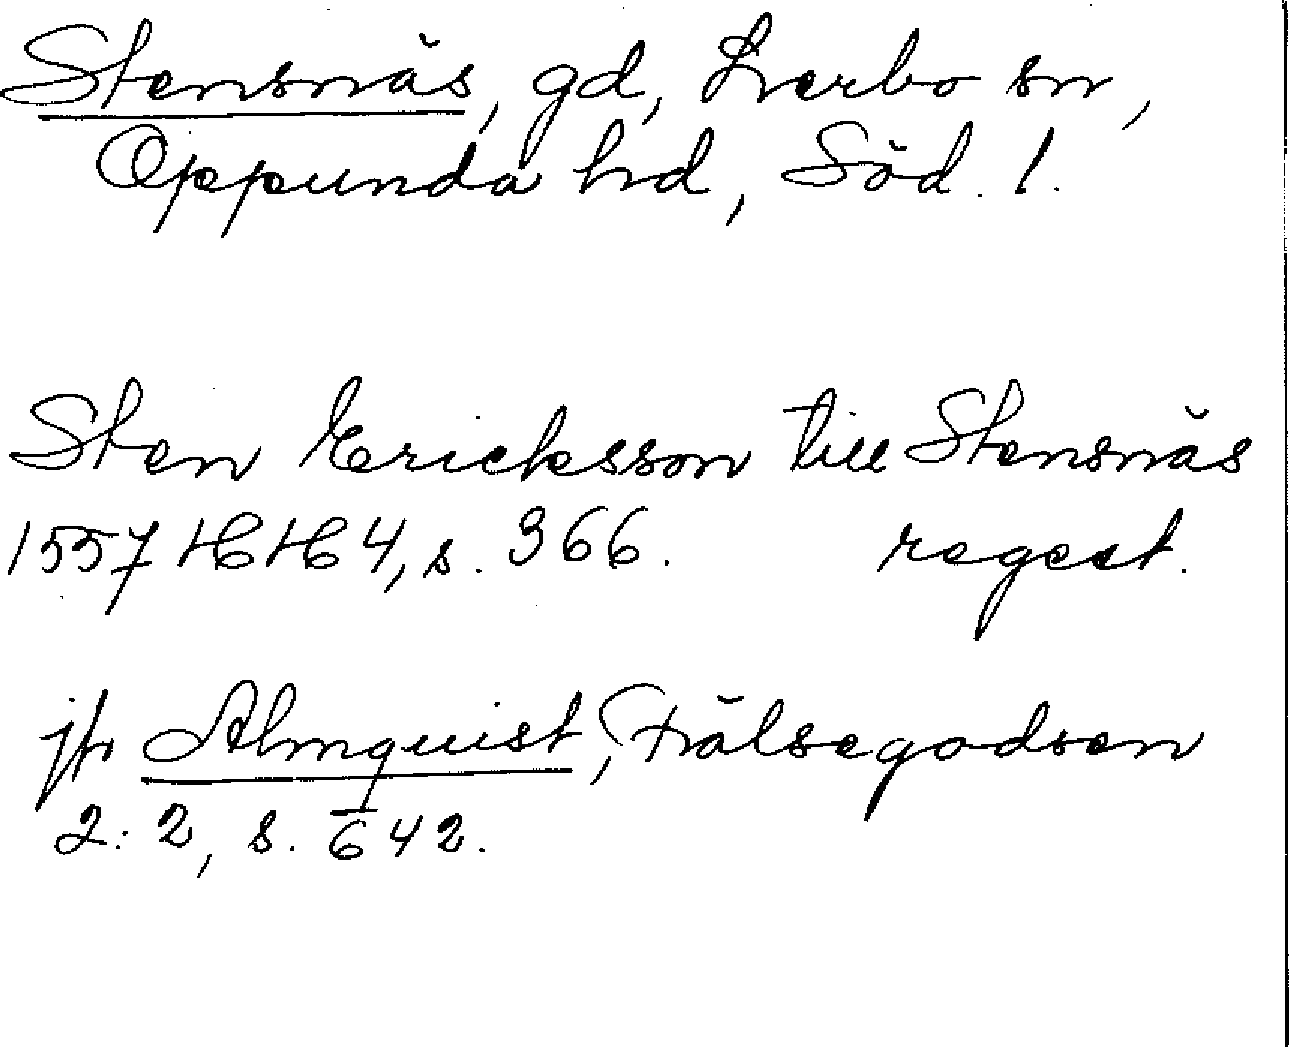 Stensnäs, gd, Lerbo sn,
Oppunda hd, Söd. l.
Sten Ericksson till Stensnäs
1557 HH 4, s. 366. regest.
jfr Almquist, Frälsegodsen
2:2, s. 642.